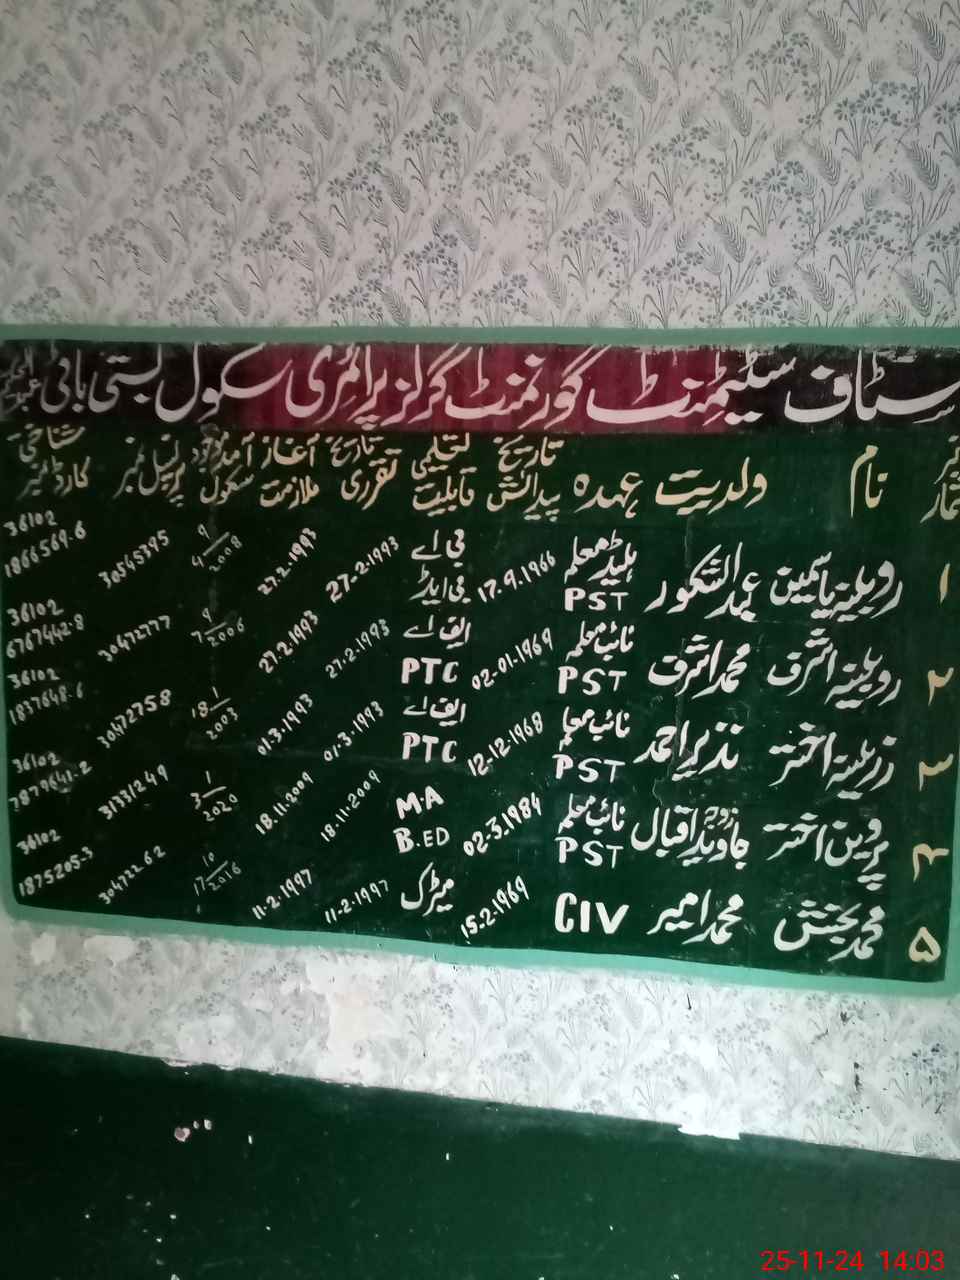 سٹاف سٹیٹمنٹ گورنمنٹ گرلز پرائمری سکول بستی باقی عبدالحکیم
نمبر شمار نام ولدیت عہدہ تاریخ پیدائش تعلیمی قابلیت تاریخ تقرری آغاز ملازمت آمد موجود سکول پرسنل نمبر شناختی کارڈ نمبر
۱ روبینہ یاسمین عبدالشکور ہیڈ معلمہ PST 17.9.1966 بی اے بی ایڈ 27-2-1993 27.2.1993 4/9/2008 30545395 36102 1866569.6
۲ روبینہ اشرف محمد اشرف نائب معلمہ PST 02-01-1969 ایف اے PTC 27-2-1993 27.2.1993 7/9/2006 30472777 36102 6767442.8
۳ زرینہ اختر نذیر احمد نائب معلمہ PST 12-12-1968 ایف اے PTC 01-3-1993 01.3.1993 18/1/2003 30472758 36102 1837648.6
۴ پروین اختر زوجہ جاوید اقبال نائب معلمہ PST 02-3.1984 M.A B.ED 18.11.2009 18.11.2009 3/1/2020 31331249 36102 7879641-2
۵ محمد بخش محمد امیر CIV 15.2.1969 میٹرک 11-2-1997 11.2.1997 17/10/2016 30472262 36102 1875205.3
25-11-24 14:03